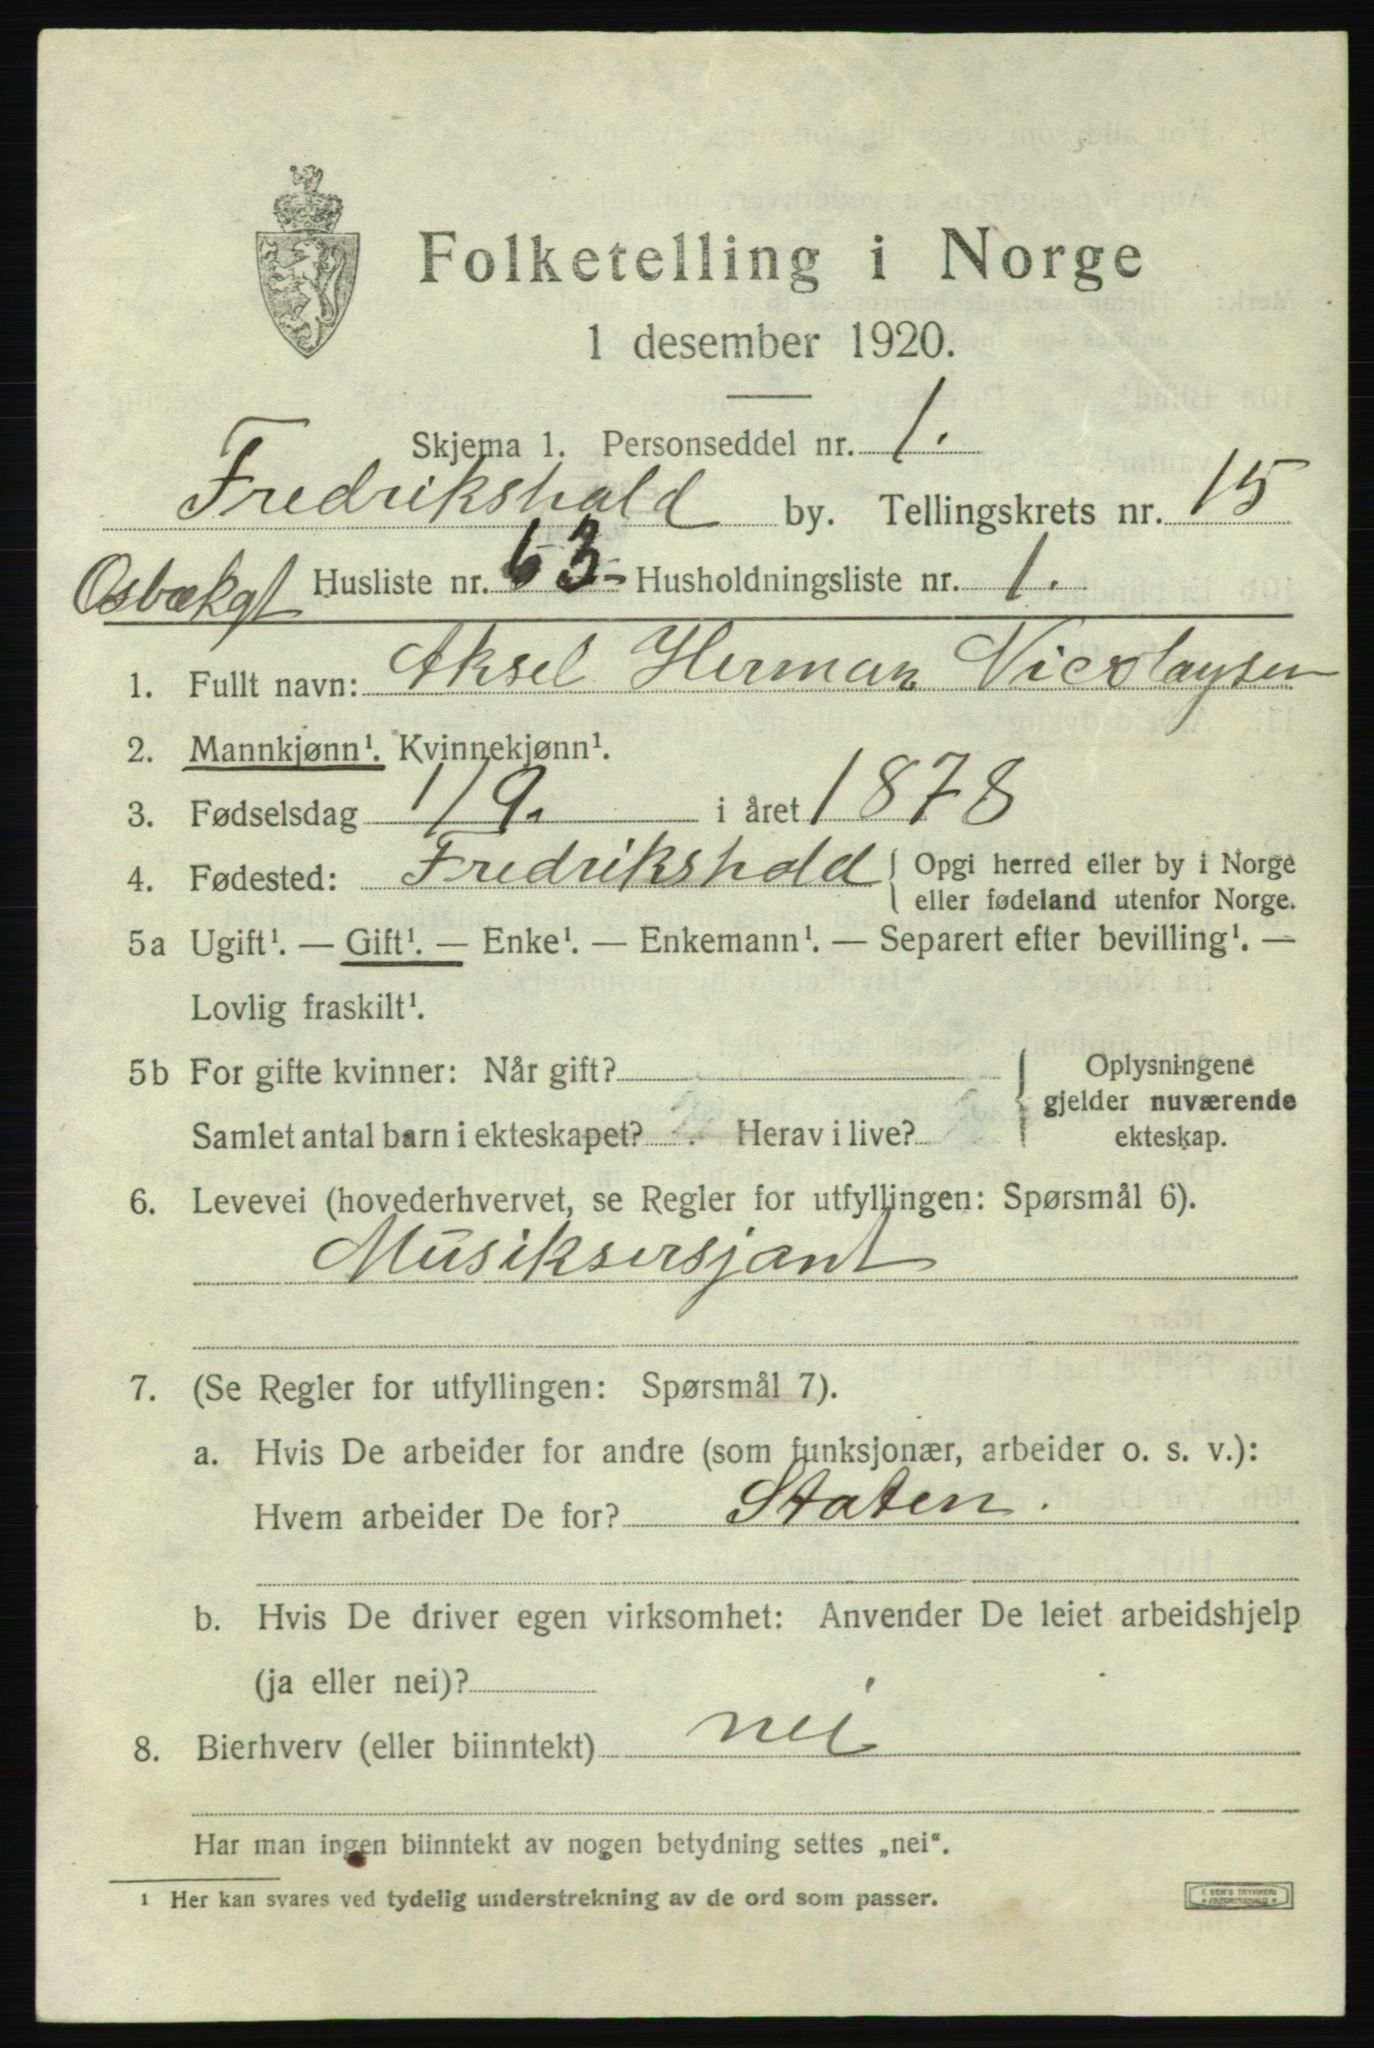 Folketelling i Norge
1 desember 1920.
Skjema 1. Personseddel nr. 1.
Fredrikshald by. Tellingskrets nr. 15
Osbækgt Husliste nr. 63 - Husholdningsliste nr. 1.
1. Fullt navn: Aksel Herman Nicolaysen
2. Mannkjønn¹. Kvinnekjønn¹.
3. Fødselsdag 1/9. i året 1878
4. Fødested: Fredrikshald { Opgi herred eller by i Norge
eller fødeland utenfor Norge.
5a Ugift¹. — Gift¹. — Enke¹. — Enkemann¹. — Separert efter bevilling¹. —
Lovlig fraskilt¹.
5b For gifte kvinner: Når gift? Oplysningene
gjelder nuværende
Samlet antal barn i ekteskapet? Herav i live? ekteskap.
6. Levevei (hovederhvervet, se Regler for utfyllingen: Spørsmål 6).
Musiksersjant
7. (Se Regler for utfyllingen: Spørsmål 7).
a. Hvis De arbeider for andre (som funksjonær, arbeider o. s. v.):
Hvem arbeider De for? Staten.
b. Hvis De driver egen virksomhet: Anvender De leiet arbeidshjelp
(ja eller nei)?
8. Bierhverv (eller biinntekt) nei
Har man ingen biinntekt av nogen betydning settes „nei“.
¹ Her kan svares ved tydelig understrekning av de ord som passer.